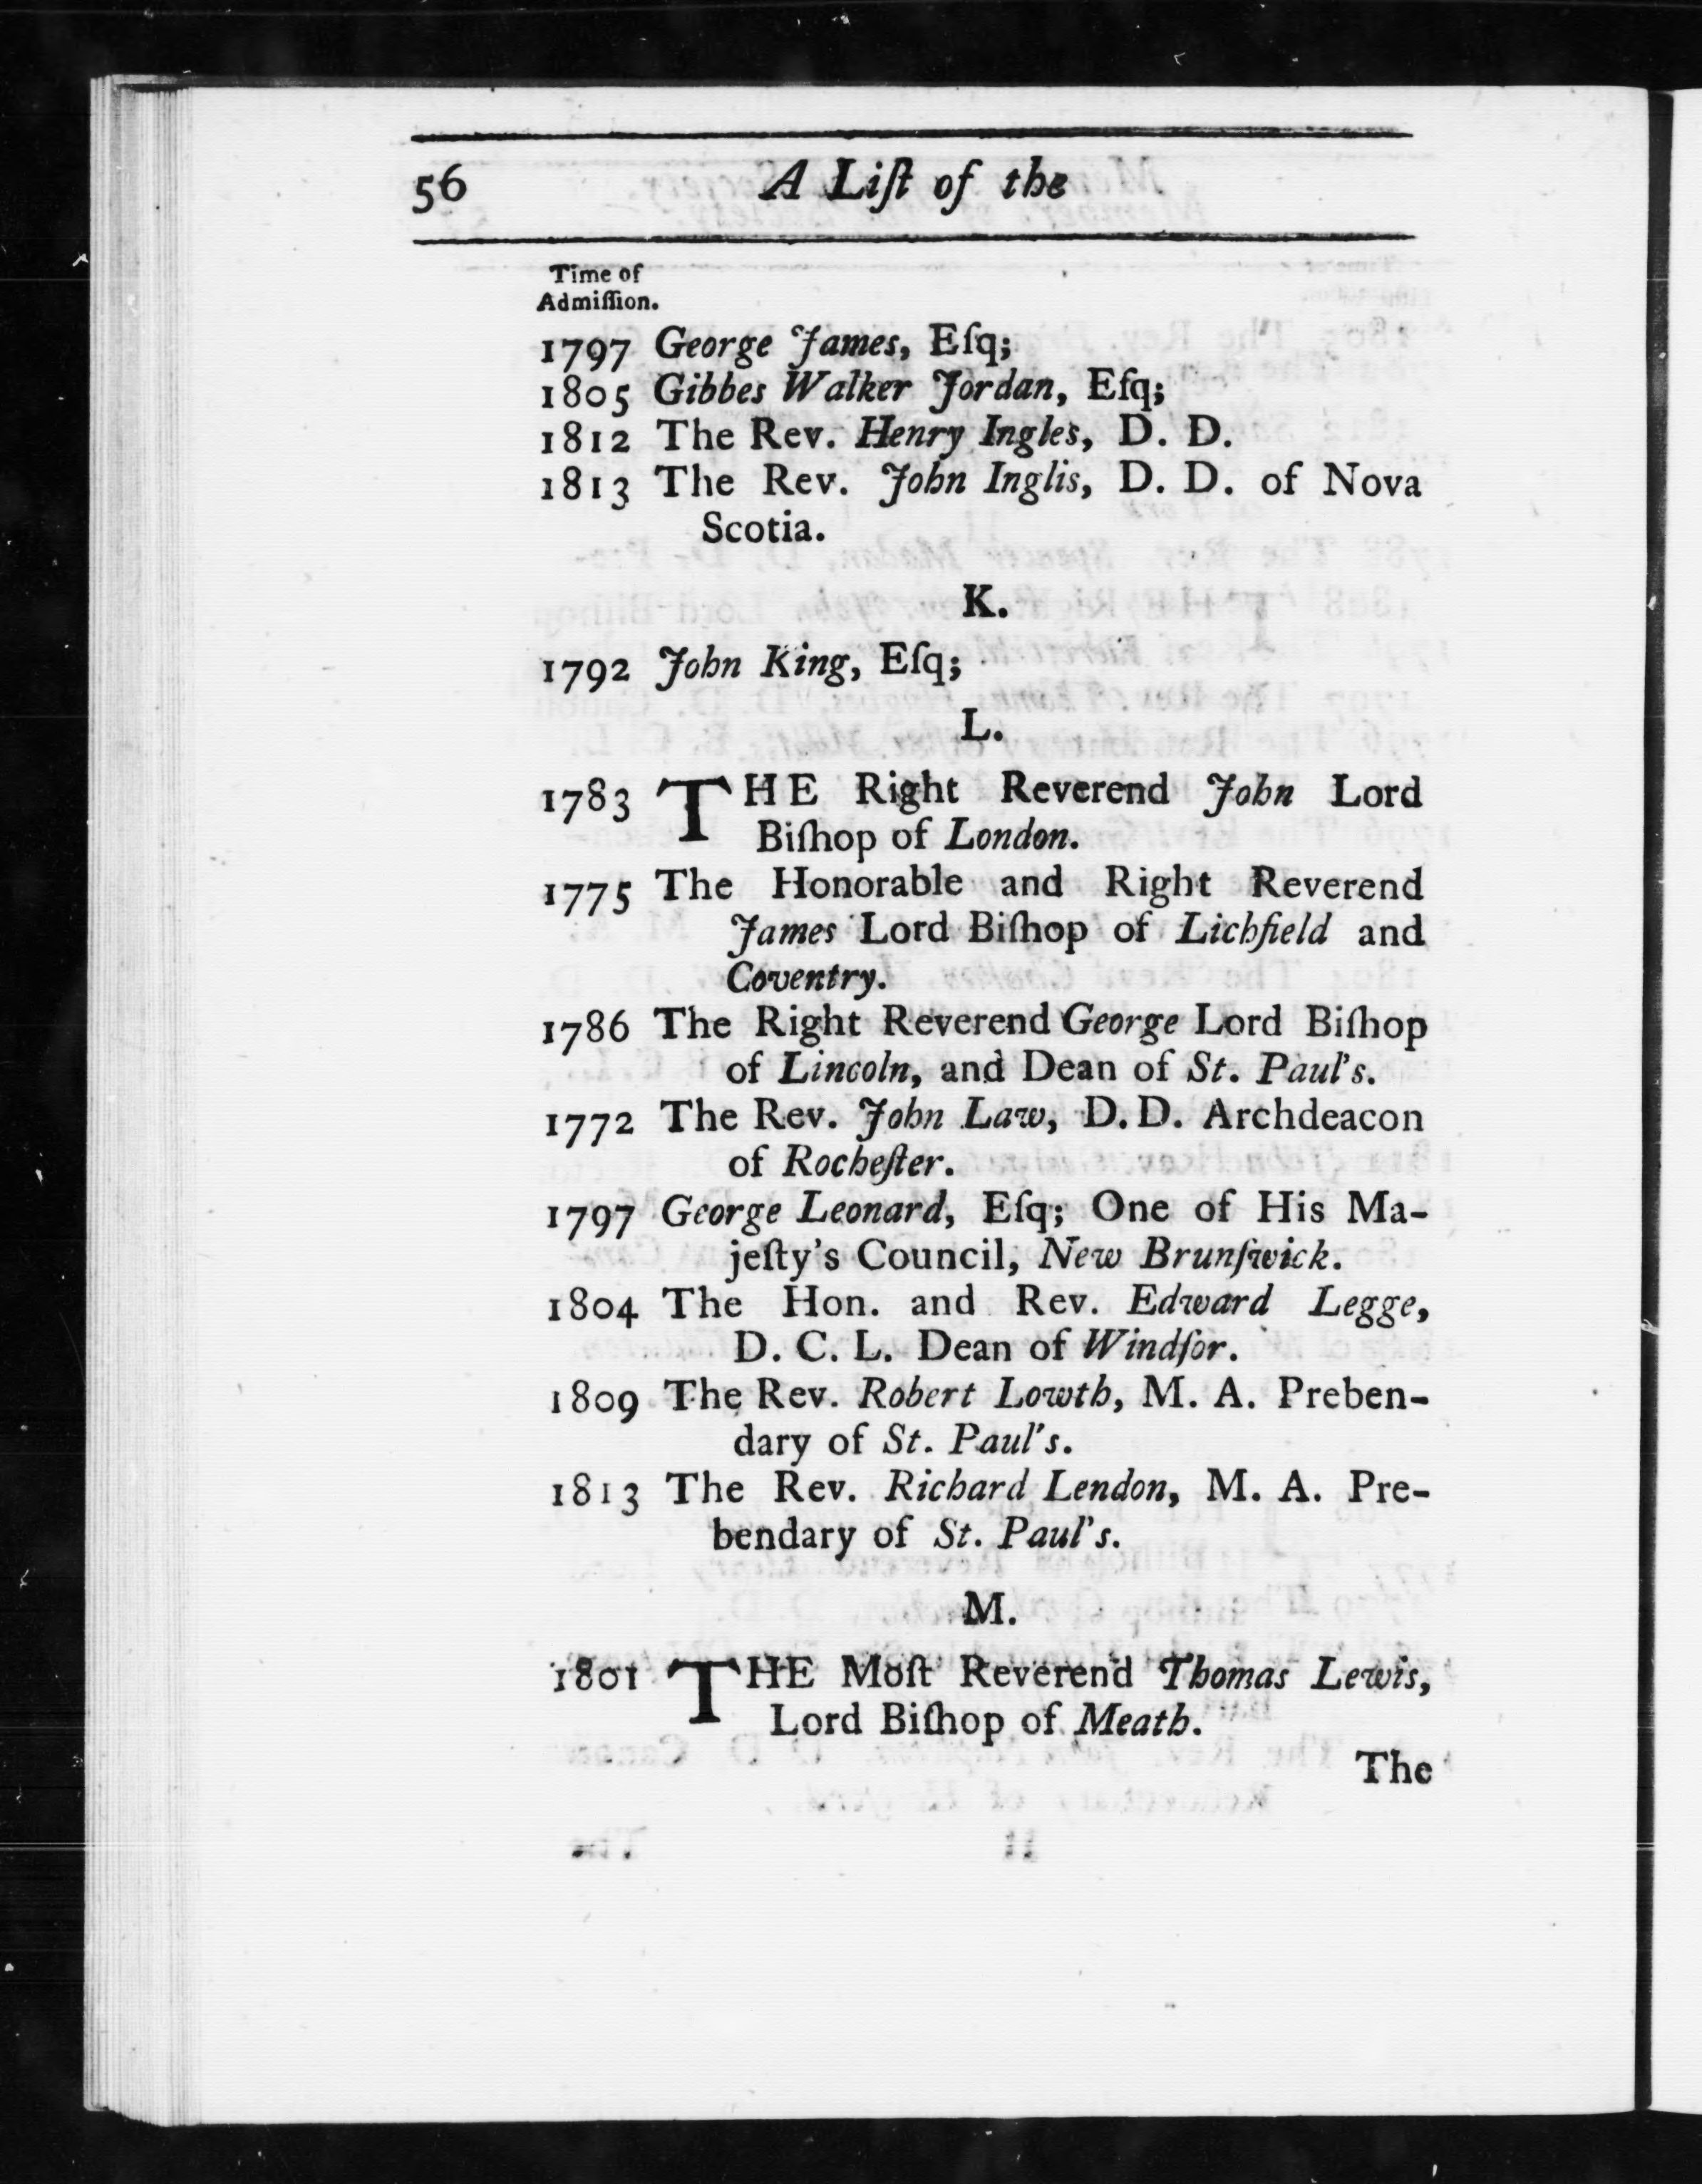 56 A Liſt of the
Time of
Admiſſion.
1797 George James, Eſq;
1805 Gibbes Walker Jordan, Eſq;
1812 The Rev. Henry Ingles, D. D.
1813 The Rev. John Inglis, D. D. of Nova
Scotia.
K.
1792 John King, Eſq;
L.
1783 THE Right Reverend John Lord
Biſhop of London.
1775 The Honorable and Right Reverend
James Lord Biſhop of Lichfield and
Coventry.
1786 The Right Reverend George Lord Biſhop
of Lincoln, and Dean of St. Paul's.
1772 The Rev. John Law, D. D. Archdeacon
of Rocheſter.
1797 George Leonard, Eſq; One of His Ma-
jeſty's Council, New Brunſwick.
1804 The Hon. and Rev. Edward Legge,
D. C. L. Dean of Windſor.
1809 The Rev. Robert Lowth, M. A. Preben-
dary of St. Paul's.
1813 The Rev. Richard Lendon, M. A. Pre-
bendary of St. Paul's.
M.
1801 THE Moſt Reverend Thomas Lewis,
Lord Biſhop of Meath.
The